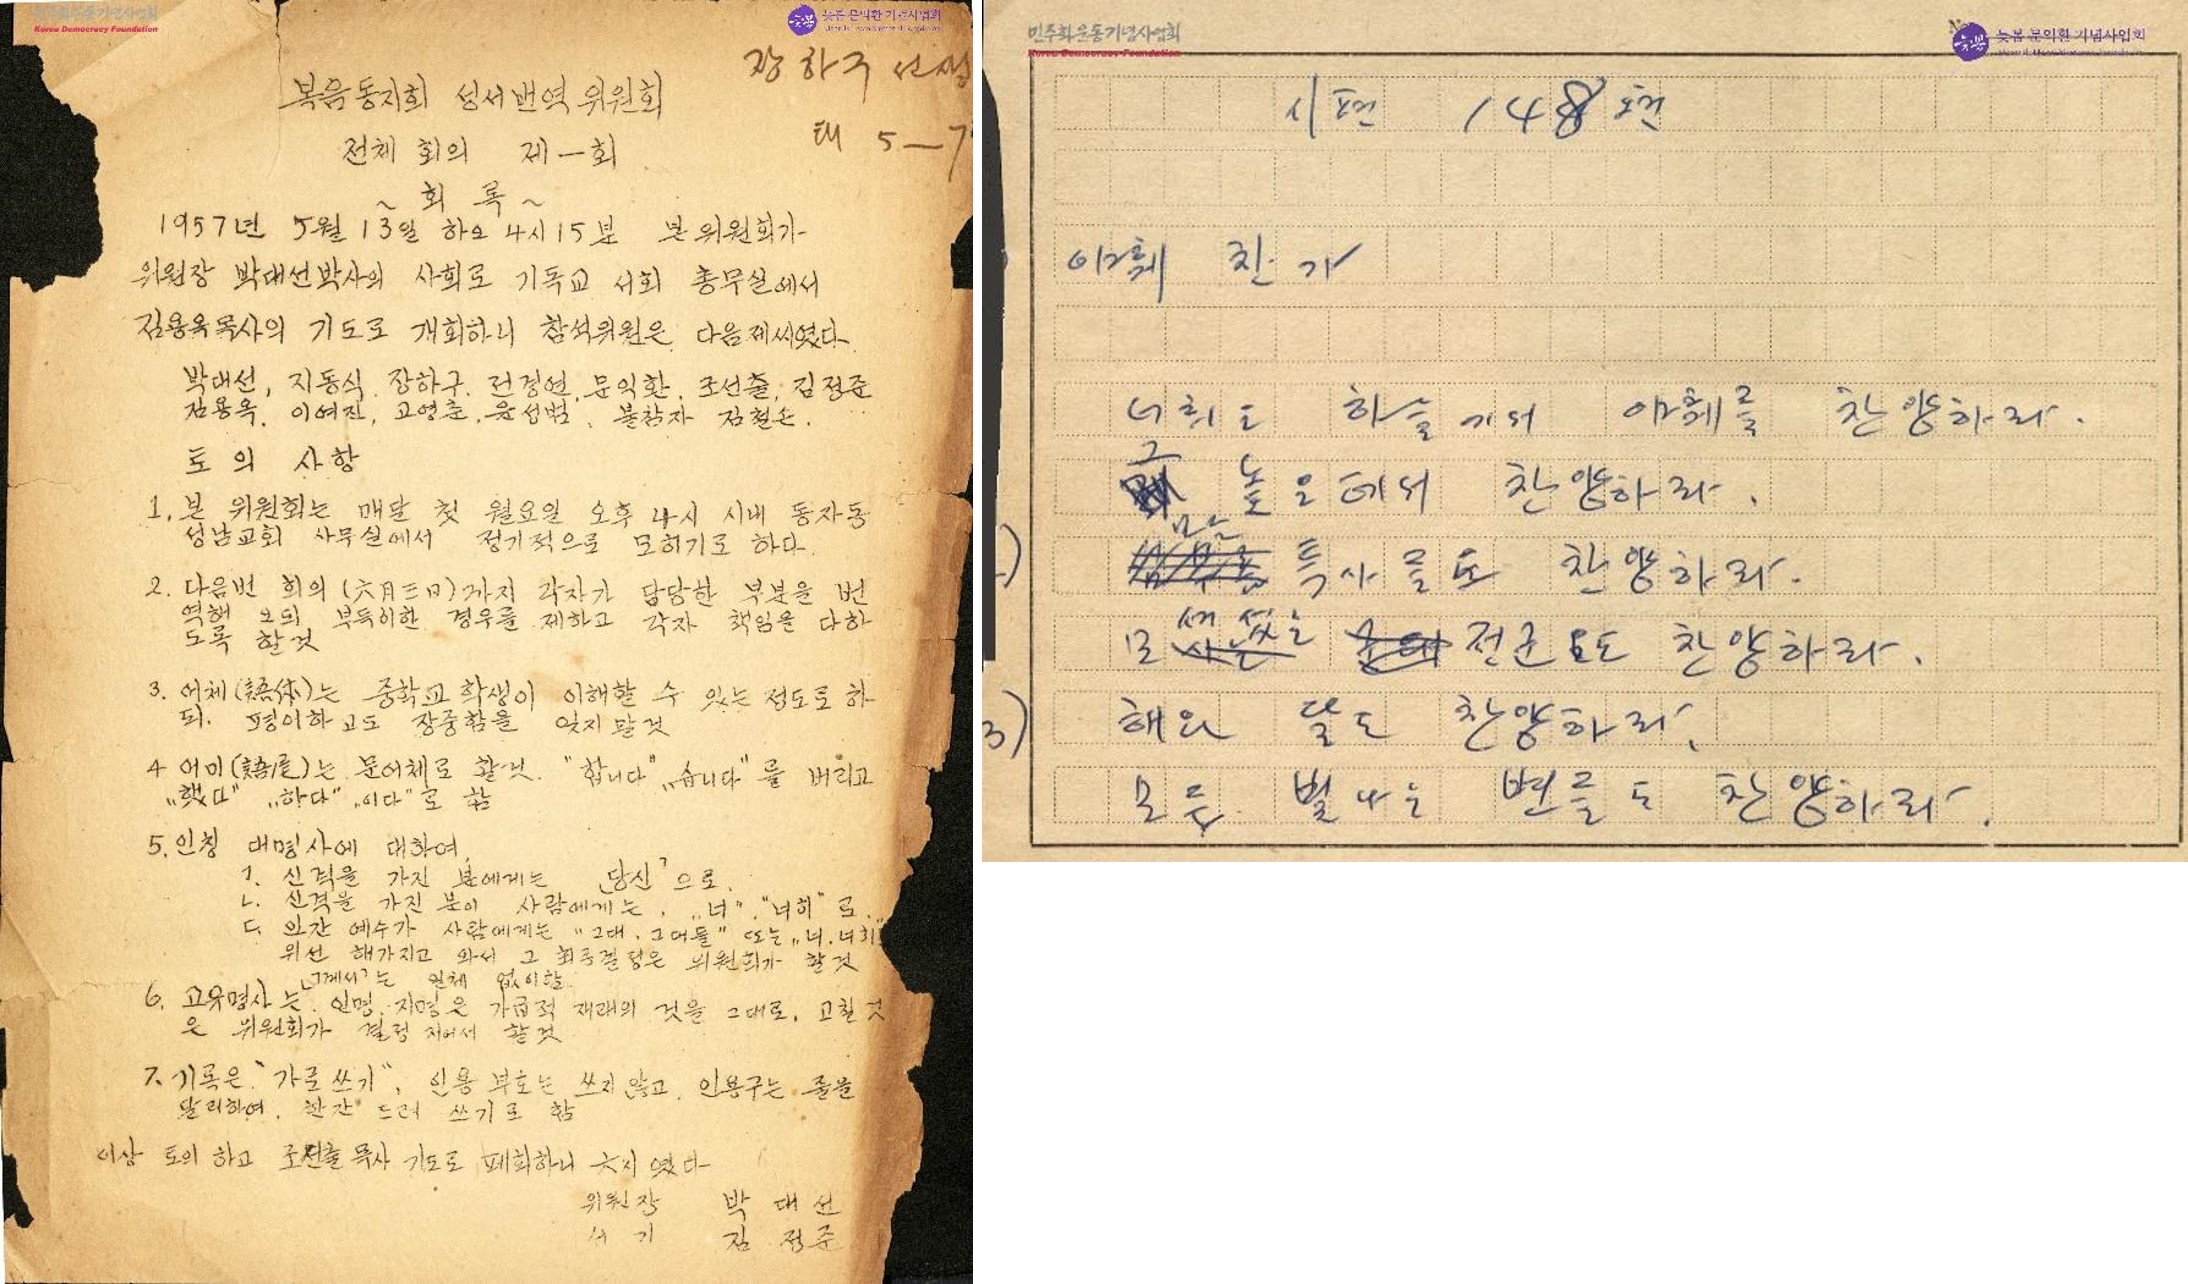 민주화운동기념사업회
Korea Democracy Foundation
늦봄 문익환 기념사업회
장하구 선생
태 5—7
복음동지회 성서번역위원회
전체 회의 제一회
~ 회 록 ~
1957년 5월 13일 하오 4시 15분 본 위원회가
위원장 박대선박사의 사회로 기독교 서회 총무실에서
김용옥목사의 기도로 개회하니 참석위원은 다음 제씨였다
박대선, 지동식, 장하구, 전경연, 문익환, 조선출, 김정준
김용옥, 이여진, 고영춘, 윤성범, 불참자 김철손.
토의 사항
1. 본 위원회는 매달 첫 월요일 오후 4시 시내 동자동
성남교회 사무실에서 정기적으로 모히기로 하다
2. 다음번 회의 (六月三日)까지 각자가 담당한 부분을 번
역해 오되 부득이한 경우를 제하고 각자 책임을 다하
도록 할것
3. 어체(語体)는 중학교 학생이 이해할 수 있는 정도로 하
되. 평이하고도 장중함을 잊지 말것
4 어미(語尾)는 문어체로 할것. "합니다" „습니다" 를 버리고
„했다" „하다" „이다"로 함
5. 인칭 대명사에 대하여,
ㄱ. 신격을 가진 분에게는 「당신」으로.
ㄴ. 신격을 가진 분이 사람에게는, „너", "너히" 로.
ㄷ. 인간 예수가 사람에게는 "그대, 그대들" 또는 „너, 너희"
위선 해가지고 와서 그 최후결정은 위원회가 할것
「께서」는 일체 없이함
6. 고유명사는, 인명, 지명은 가급적 재래의 것을 그대로, 고칠것
은 위원회가 결정 지어서 할것
7. 기록은 "가로 쓰기", 인용 부호는 쓰지않고, 인용구는 줄을
달리하여, 한간 드려 쓰기로 함
이상 토의 하고 조선출목사 기도로 폐회하니 六시 였다
위원장 박 대 선
서 기 김 정 준
민주화운동기념사업회
Korea Democracy Foundation
늦봄 문익환 기념사업회
시편 148편
야훼 찬가
너희도 하늘에서 야훼를 찬양하라.
그 높은데서 찬양하라.
모든 특사들도 찬양하라.
모 섰는 전군료도 찬양하라.
3) 해와 달도 찬양하라.
모든 빛나는 별들도 찬양하라.